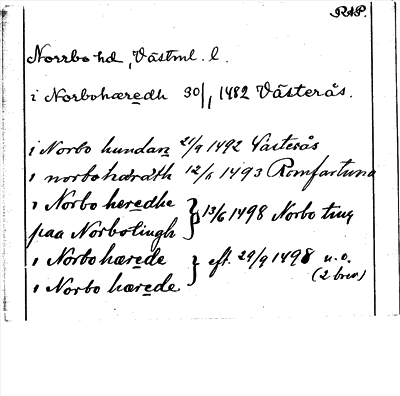 RAP.
Norrbo hd, Västml. l.
i Norbohæredh 30/1 1482 Västerås.
i Norbo hundare 21/9 1492 Västerås
i norbohdrath 12/5 1493 Romfartuna
i Norbo heredhe } 13/6 1498 Norbo ting
paa Norbotingh
i Norbo hærede } eft. 29/9 1498 u.o.
i Norbo hærede (2 brev)